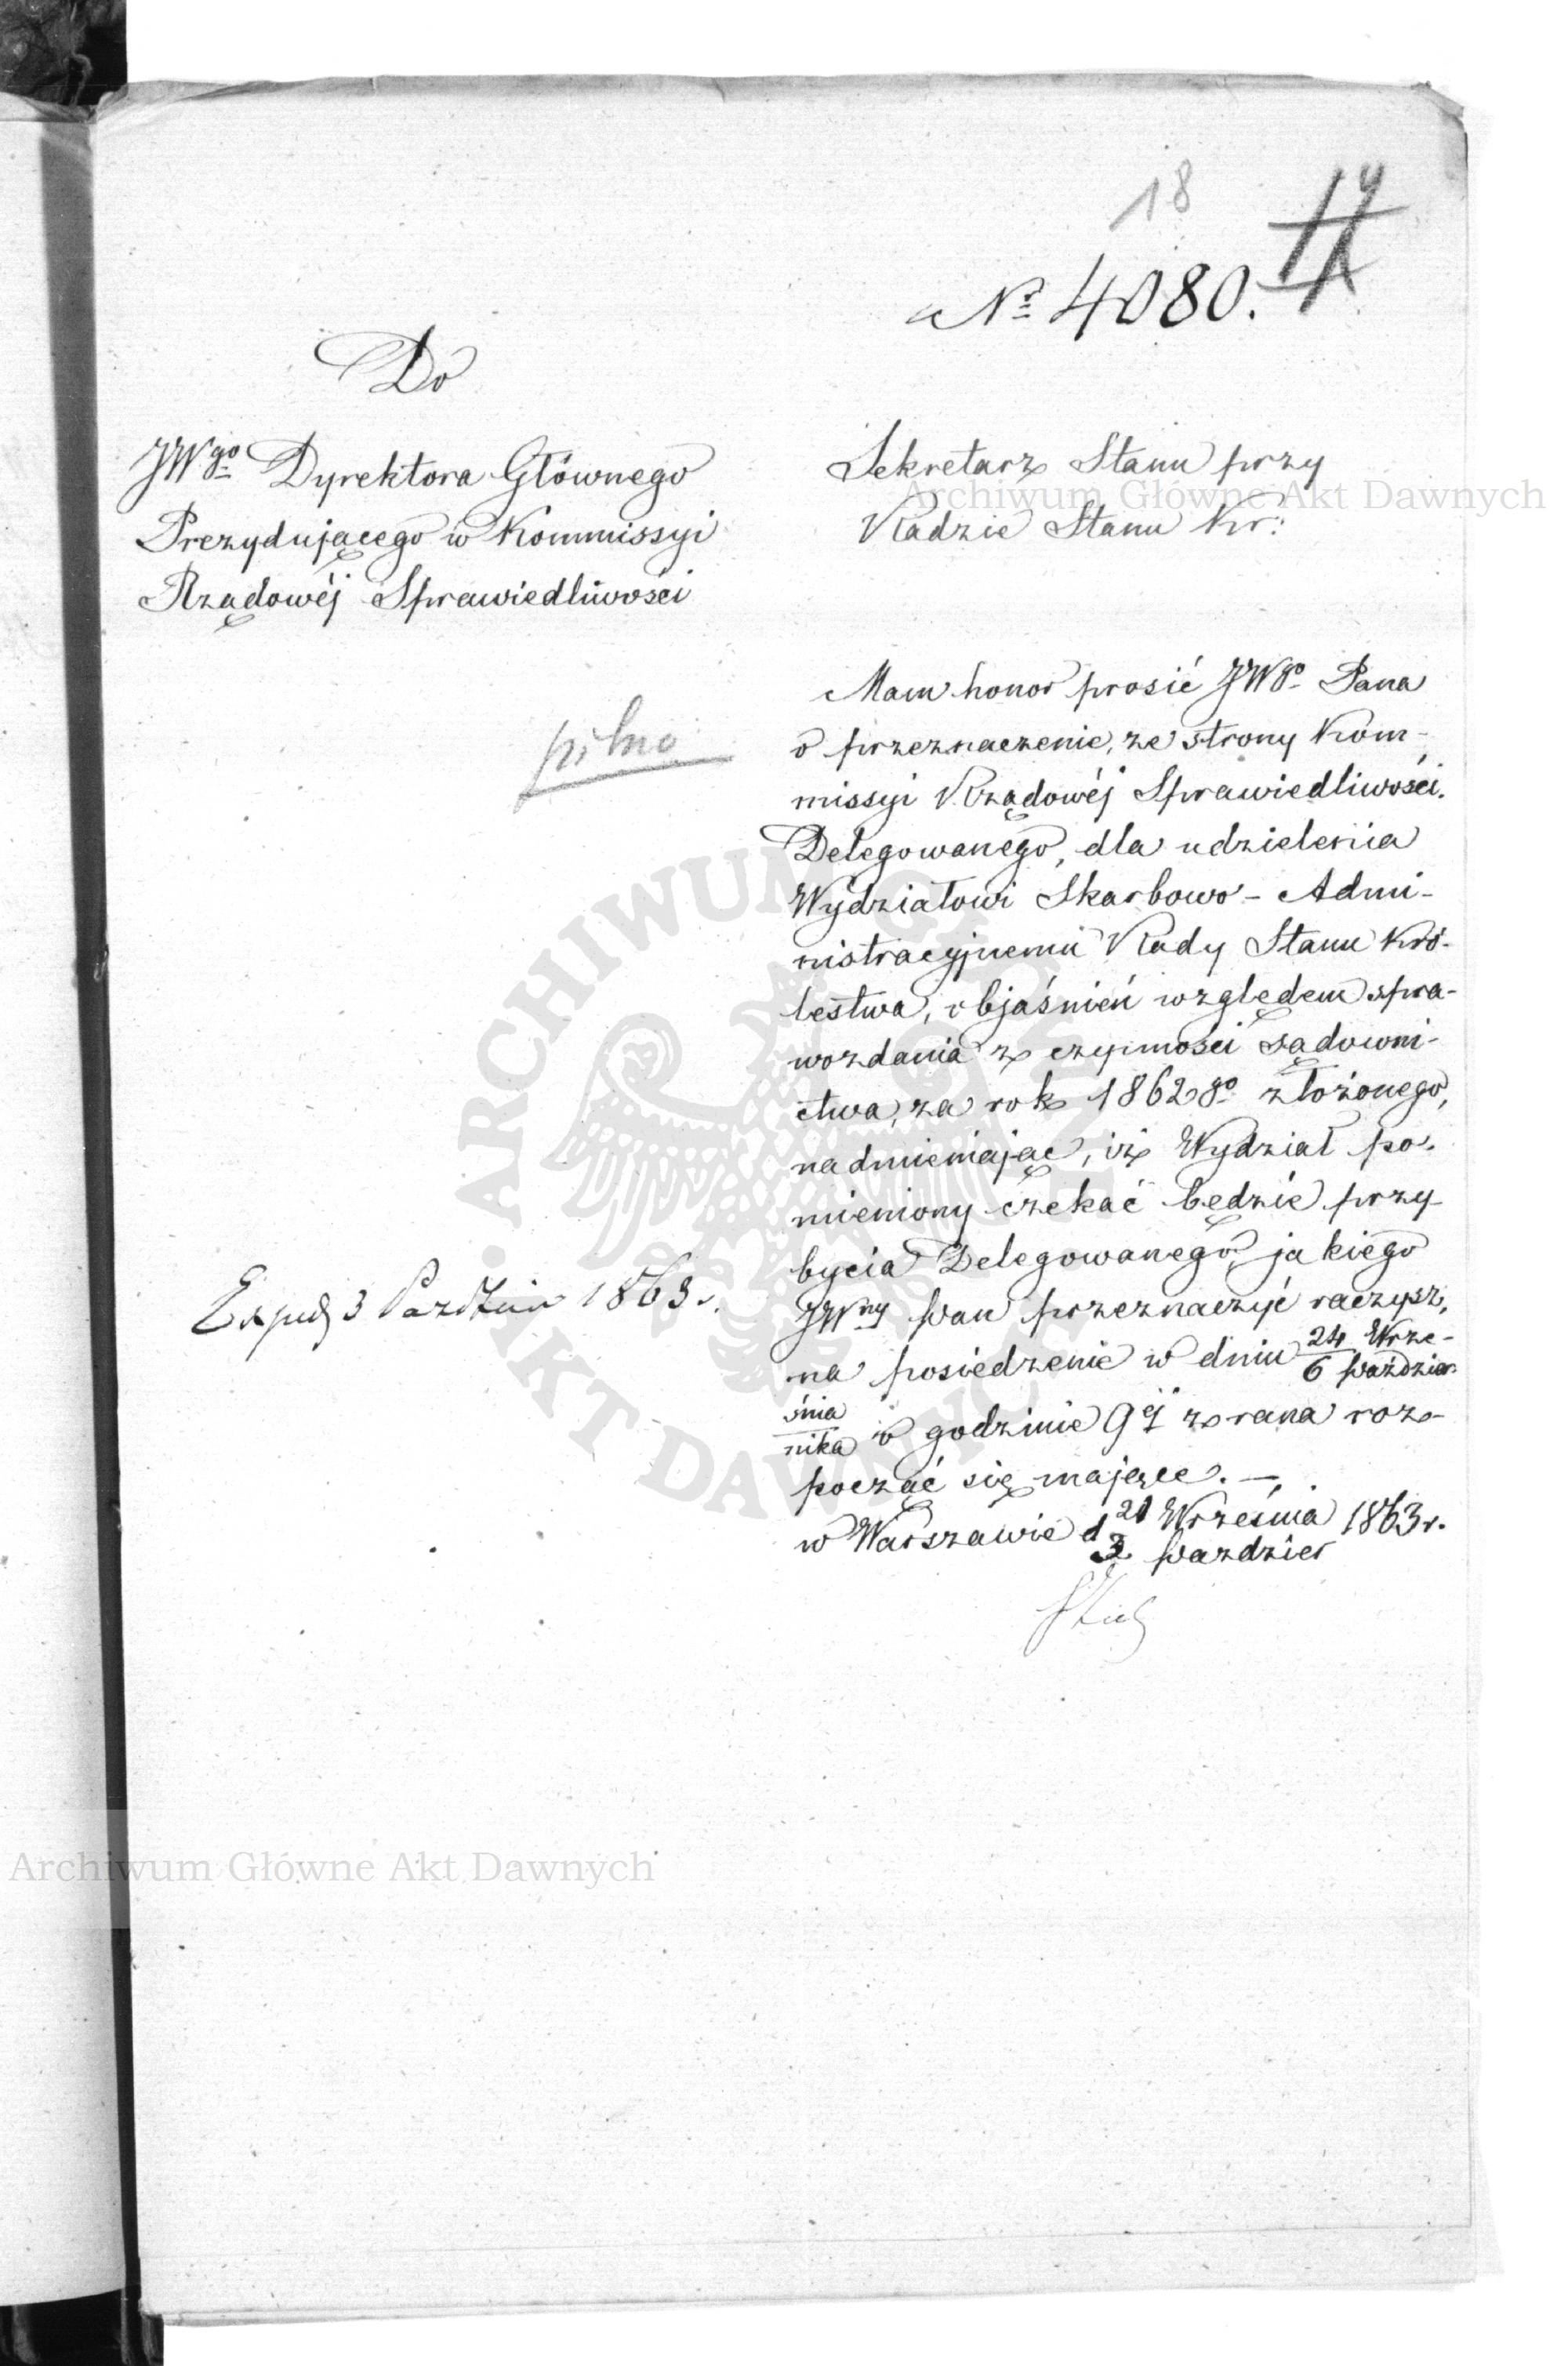 18
Nº 4080.
Do
JWgo Dyrektora Głównego
Prezydującego w Kommissyi
Rządowéj Sprawiedliwości
Sekretarz Stanu przy
Radzie Stanu Kr:
pilno
Mam honor prosić JWgo Pana
o przeznaczenie, ze strony Kom-
missyi Rządowéj Sprawiedliwości.
Delegowanego, dla udzielenia
Wydziałowi Skarbowo-Admi-
nistracyjnemu Rady Stanu Kró-
lestwa, objaśnień względem spra-
wozdania z czynności sądowni-
ctwa, za rok 1862go złożonego,
nadmieniając, iż Wydział po-
mieniony czekać będzie przy-
bycia Delegowanego, jakiego
JWny Pan przeznaczyć raczysz,
na posiedzenie w dniu 24/6 Wrze-/Paździer-
śnia/nika o godzinie 9éj z rana roz-
począć się mające. —
w Warszawie d 21/3 Września/Paździer 1863 r.
Exped 3 Paździer 1863 r.
Archiwum Główne Akt Dawnych
ARCHIWUM GŁÓWNE AKT DAWNYCH
Archiwum Główne Akt Dawnych